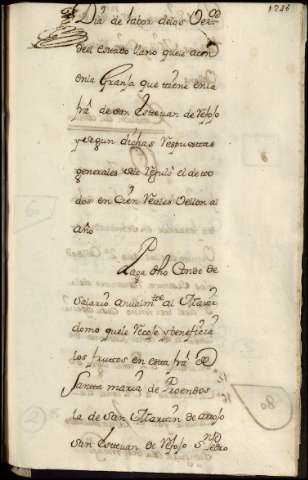 1236
Dia de labor de los Veros
del estado llano que le acen
en la Granja que tiene en la
frã de san Estevan de Vesoso
y segun dichas Respuestas
generales vale Regulº el de to
dos en Cien Reales Vellon al
año
Paga dho Conde de
Salario anualmte al Maior
domo que le Recoje y beneficia
los frutos en esta frã de
Santa maria de Proendos
la de San Martin de arrojo
San Estevan de Vesoso Sn Pedro
80